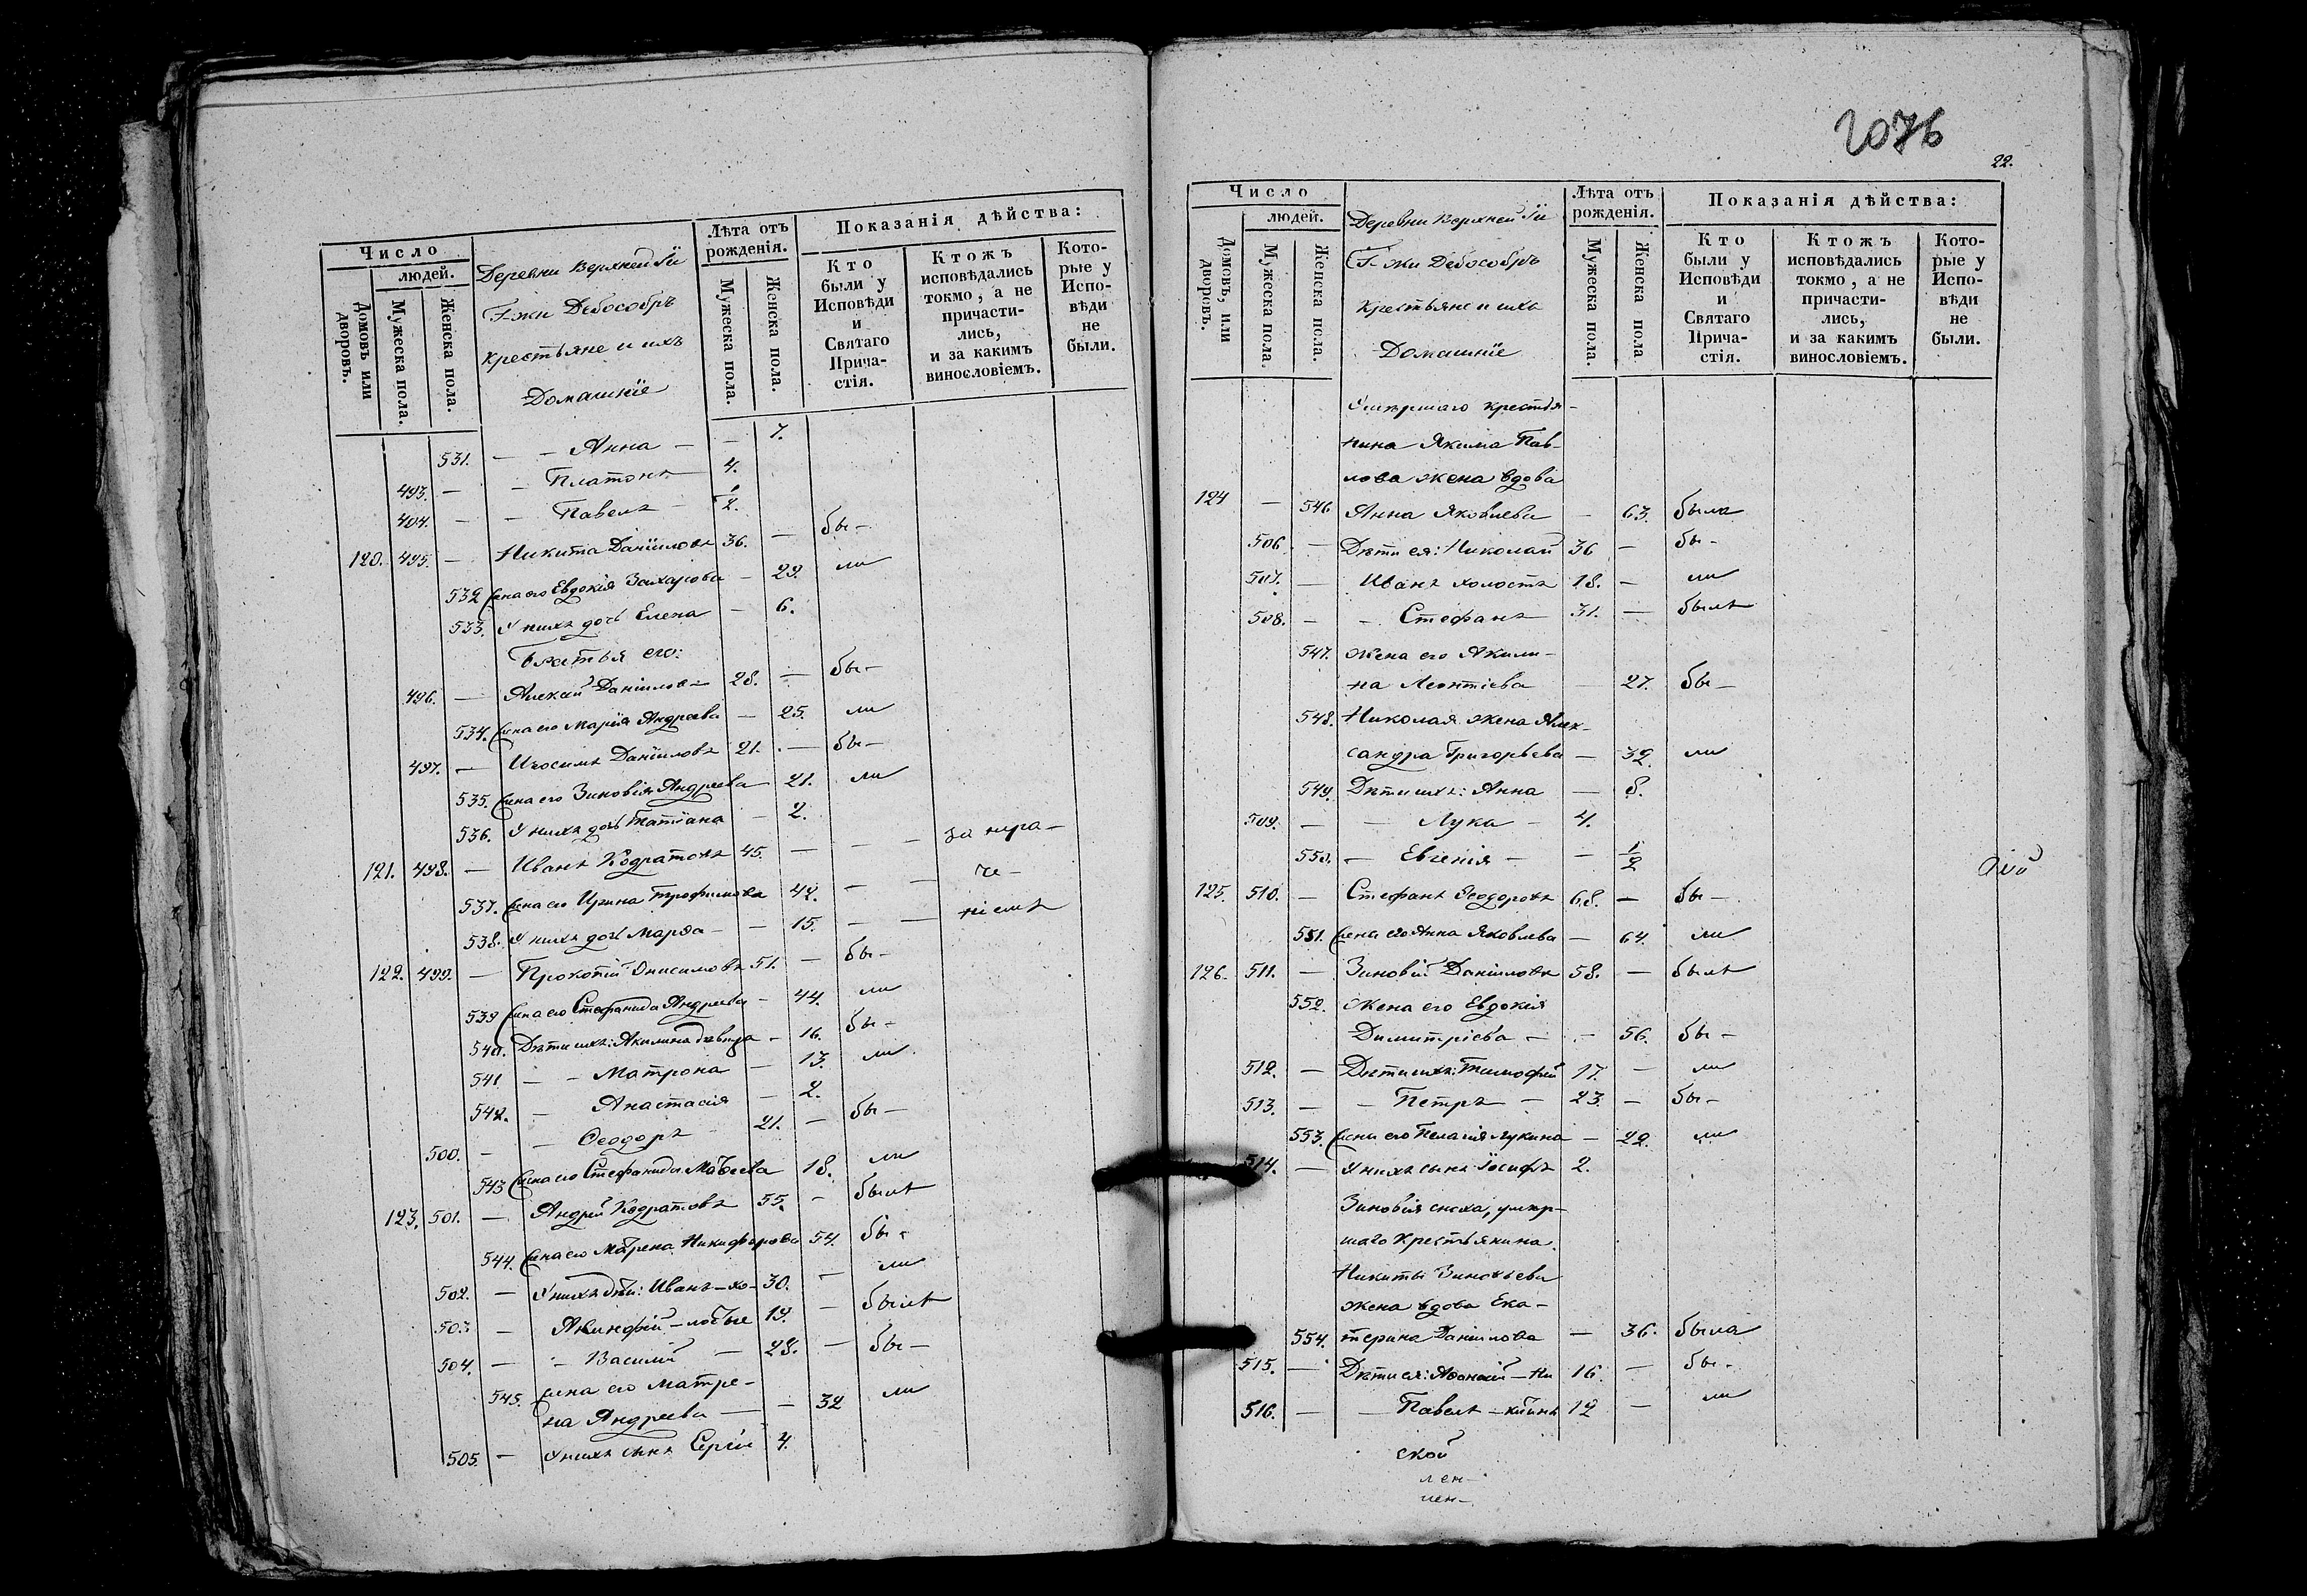 Число
людей.
Домовъ или дворовъ.
Мужеска пола.
Женска пола.
Деревни Верхней Ги
Г-жи Дебособръ
крестьяне и ихъ
Домашніе
Лѣта отъ рожденія.
Мужеска пола.
Женска пола.
Показанія дѣйства:
Кто были у Исповѣди и Святаго Причастія.
Ктожъ исповѣдались токмо, а не причасти-лись, и за какимъ винословіемъ.
Кото-рые у Испо-вѣди не были.
531. — — Анна — — 7.
493. — — Платонъ — 4.
494. — — Павелъ — 1/2.
120. 495. — Никита Даніиловъ 36. — бы-
532 Жена его Евдокія Захарова — 29. ли
533. У нихъ дочь Елена — 6.
Братья его:
496. — Алексій Даніилов — 28. — бы-
534. Жена его Марія Андреева — 25. ли
497. — Иосимъ Даніиловъ 21. — бы-
535. Жена его Зиновія Андреева — 21. ли
536. У нихъ дочь Татіана — 2.
121. 498. — Иванъ Кодратовъ 45. — — — за нера-
537. Жена его Ирина Трофимова 42. — — че-
538. У нихъ дочь Марѳа — — 15. — — ніемъ
122. 499. — Прокопій Онисимовъ 51. — бы-
539 Жена его Стефанида Андреева — 44. ли
540. Дѣти ихъ: Акилина дѣвица — 16. бы-
541 — — Матрона — 13. ли
542. — Анастасія — 2.
500. — — Ѳеодоръ 21. — бы-
543 Жена его Стефанида Маѳеева 18. ли
123. 501. — Андрей Кодратовъ 55. — былъ
544. Жена его Матрена Никифорова 54. бы-
502. — У нихъ дѣти: Иванъ — хо- 30. — ли
503 — Акинфій — лостые 19. — былъ
504. — — Василій — 28. — бы-
545. Жена его Матре-
на Андреева — — 32 ли
505. — У нихъ сынъ Сергій 4.
2076
22.
Число
людей.
Домовъ, или дворовъ.
Мужеска пола.
Женска пола.
Деревни Верхней Ги
Г-жи Дебособръ
крестьяне и ихъ
Домашніе
Лѣта отъ рожденія.
Мужеска пола.
Женска пола
Показанія дѣйства:
Кто были у Исповѣди и Святаго Прича-стія.
Ктожъ исповѣдались токмо, а не причасти-лись, и за какимъ винословіемъ.
Кото-рые у Испо-вѣди не были.
Умершаго крестья-
нина Якима Пав-
лова жена вдова
124 — 546 Анна Яковлева — 63. была
506. — Дѣти ея: Николай 36 — бы-
507. — Иванъ холостъ 18. — ли
508. — — Стефанъ 31. — былъ
547. Жена его Акили-
на Леонтіева — 27. бы-
548. Николая жена Алек-
сандра Григорьева — 32 ли
549. Дѣти ихъ: Анна — 8.
509. — — Лука — 4.
550. — Евгенія — — 1/2
125. 510. — Стефанъ Ѳеодоровъ 68. — бы-
551. Жена его Анна Яковлева — 64. ли
126. 511. — Зиновій Даніиловъ 58. — былъ
552. Жена его Евдокія
Димитріева — — 56. бы-
512. — Дѣти ихъ: Тимофей 17. — ли
513. — — Петръ — 23. — бы-
553. Жена его Пелагія Лукина — 22. ли
514. — У нихъ сынъ Іосифъ 2.
Зиновія сноха, умер-
шаго крестьянина
Никиты Зиновьева
жена вдова Ека-
554. терина Даніилова — 36. была
515. — Дѣти ея: Аѳонасій — Ни 16. — бы-
516. — — Павелъ — китинъ 12 — ли
ской
лен-